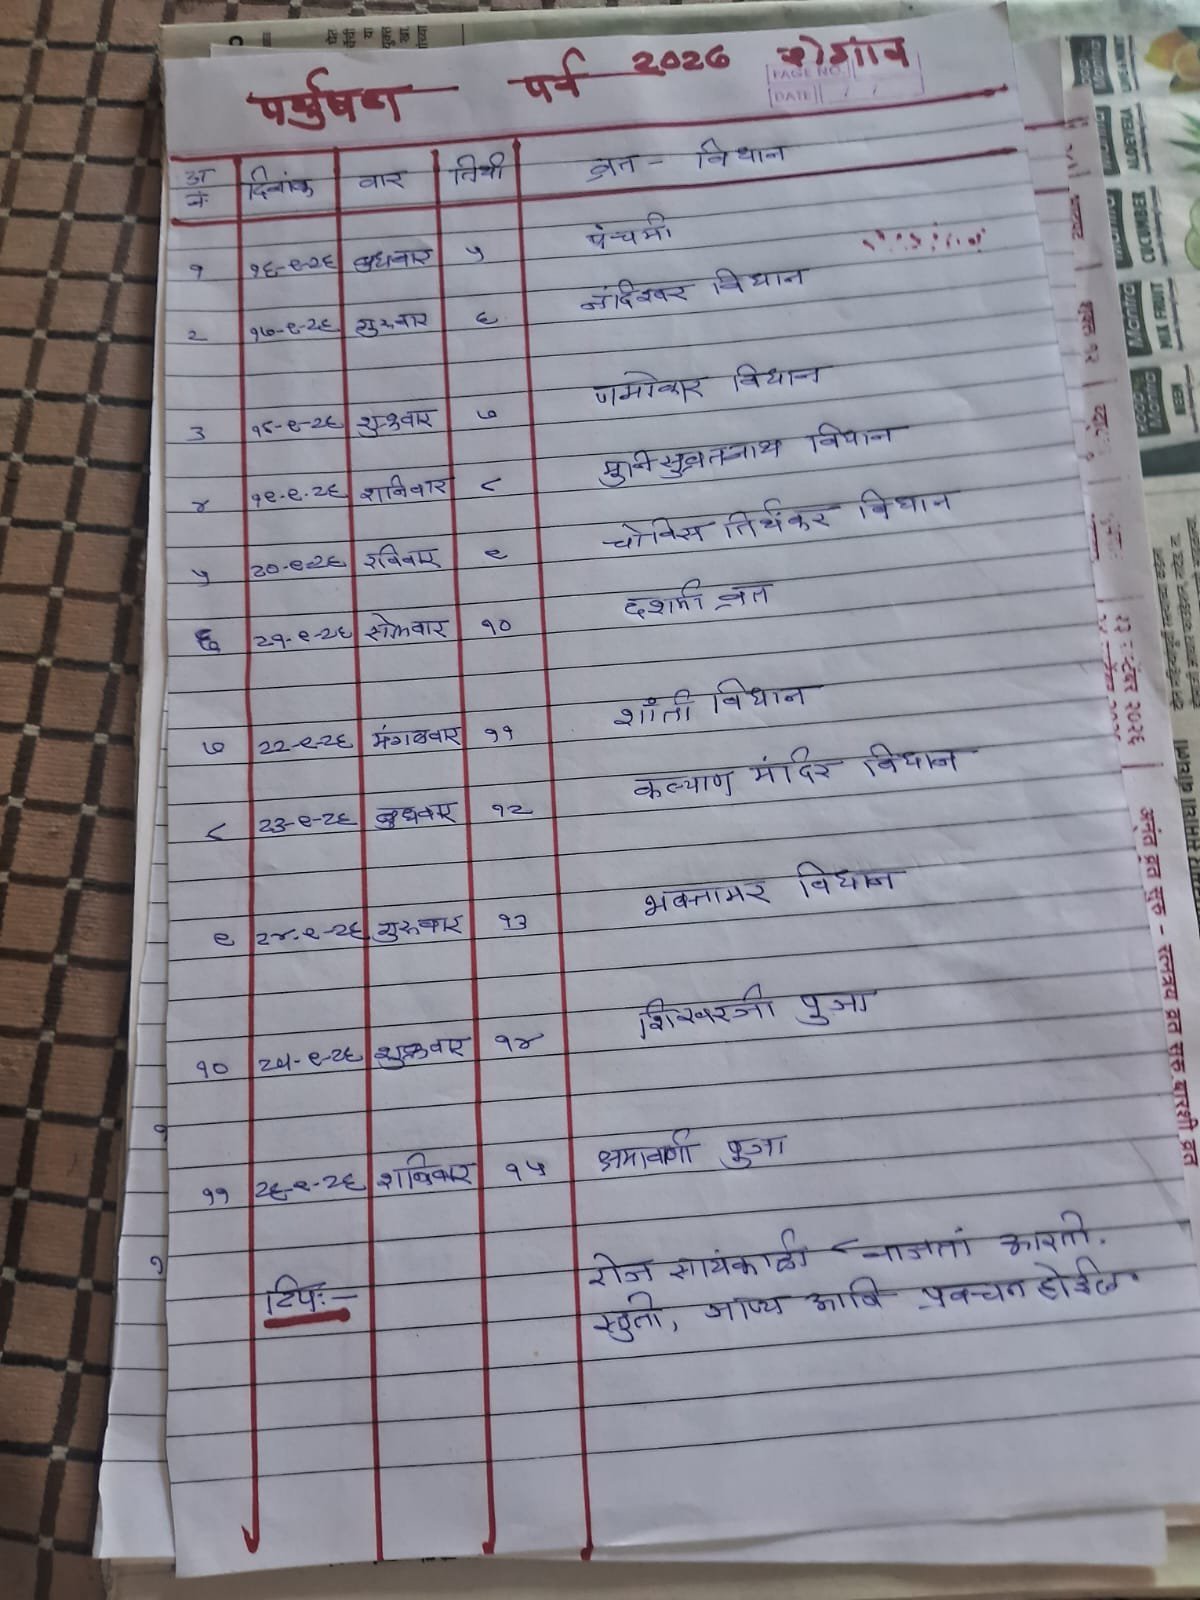 पर्युषण पर्व 2026 शेगांव
PAGE NO.
DATE
अ नं दिनांक वार तिथी व्रत - विधान
१ १६-९-२६ बुधवार ५ पंचमी
२ १७-९-२६ गुरुवार ६ नंदिश्वर विधान
३ १८-९-२६ शुक्रवार ७ णमोकार विधान
४ १९-९-२६ शनिवार ८ मुनिसुव्रतनाथ विधान
५ २०-९-२६ रविवार ९ चोविस तिर्थंकर विधान
६ २१-९-२६ सोमवार १० दशमी व्रत
७ २२-९-२६ मंगळवार ११ शांती विधान
८ २३-९-२६ बुधवार १२ कल्याण मंदिर विधान
९ २४-९-२६ गुरुवार १३ भक्तामर विधान
१० २५-९-२६ शुक्रवार १४ शिखरजी पुजा
११ २६-९-२६ शनिवार १५ क्षमावणी पुजा
टिप:- रोज सायंकाळी ८ वाजतां आरती.
स्तुती, जाप्य आणि प्रवचन होईल.
अनंत व्रत सुरु - रत्नत्रय व्रत सुरु
ALOEVERA
CUCUMBER
MIX FRUIT
NEEM